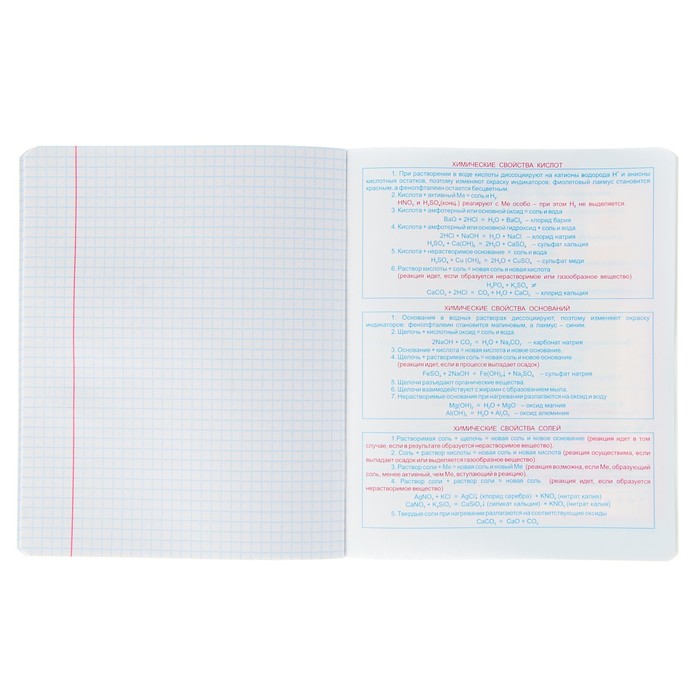 ХИМИЧЕСКИЕ СВОЙСТВА КИСЛОТ
1. При растворении в воде кислоты диссоциируют на катионы водорода H⁺ и анионы
кислотных остатков, поэтому изменяют окраску индикаторов: фиолетовый лакмус становится
красным, а фенолфталеин остается бесцветным.
2. Кислота + активный Me = соль и H₂
HNO₃ и H₂SO₄(конц.) реагируют с Me особо – при этом H₂ не выделяется.
3. Кислота + амфотерный или основной оксид = соль и вода
BaO + 2HCl = H₂O + BaCl₂ – хлорид бария
4. Кислота + амфотерный или основной гидроксид + соль и вода
2HCl + NaOH = H₂O + NaCl - хлорид натрия
H₂SO₄ + Ca(OH)₂ = 2H₂O + CaSO₄ – сульфат кальция
5. Кислота + нерастворимое основание = соль и вода
H₂SO₄ + Cu (OH)₂ = 2H₂O + CuSO₄ – сульфат меди
6. Раствор кислоты + соль = новая соль и новая кислота
(реакция идет, если образуется нерастворимое или газообразное вещество)
H₃PO₄ + K₂SO₄ ≠
CaCO₃ + 2HCl = CO₂ + H₂O + CaCl₂ – хлорид кальция
ХИМИЧЕСКИЕ СВОЙСТВА ОСНОВАНИЙ
1. Основания в водных растворах диссоциируют, поэтому изменяют окраску
индикаторов: фенолфталеин становится малиновым, а лакмус – синим.
2. Щелочь + кислотный оксид = соль и вода.
2NaOH + CO₂ = H₂O + Na₂CO₃ – карбонат натрия
3. Основание + кислота = новая кислота и новое основание.
4. Щелочь + растворимая соль = новая соль и новое основание
(реакция идет, если в процессе выпадает осадок)
FeSO₄ + 2NaOH = Fe(OH)₂↓ + Na₂SO₄ – сульфат натрия
5. Щелочи разъедают органические вещества.
6. Щелочи взаимодействуют с жирами с образованием мыла.
7. Нерастворимые основания при нагревании разлагаются на оксид и воду
Mg(OH)₂ = H₂O + MgO – оксид магния
Al(OH)₃ = H₂O + Al₂O₃ – оксид алюминия
ХИМИЧЕСКИЕ СВОЙСТВА СОЛЕЙ
1. Растворимая соль + щелочь = новая соль и новое основание (реакция идет в том
случае, если в результате образуется нерастворимое вещество).
2. Соль + раствор кислоты = новая соль и новая кислота (реакция осуществима, если
выпадает осадок или выделяется газообразное вещество)
3. Раствор соли + Me = новая соль и новый Me (реакция возможна, если Me, образующий
соль, менее активный, чем Me, вступающий в реакцию).
4. Раствор соли + раствор соли = новая соль (реакция идет, если образуется
нерастворимое вещество)
AgNO₃ + KCl = AgCl↓ (хлорид серебра) + KNO₃ (нитрат калия)
CaNO₃ + K₂SiO₃ = CaSiO₃↓ (силикат кальция) + KNO₃ (нитрат калия)
5. Твердые соли при нагревании разлагаются на соответствующие оксиды
CaCO₃ = CaO + CO₂